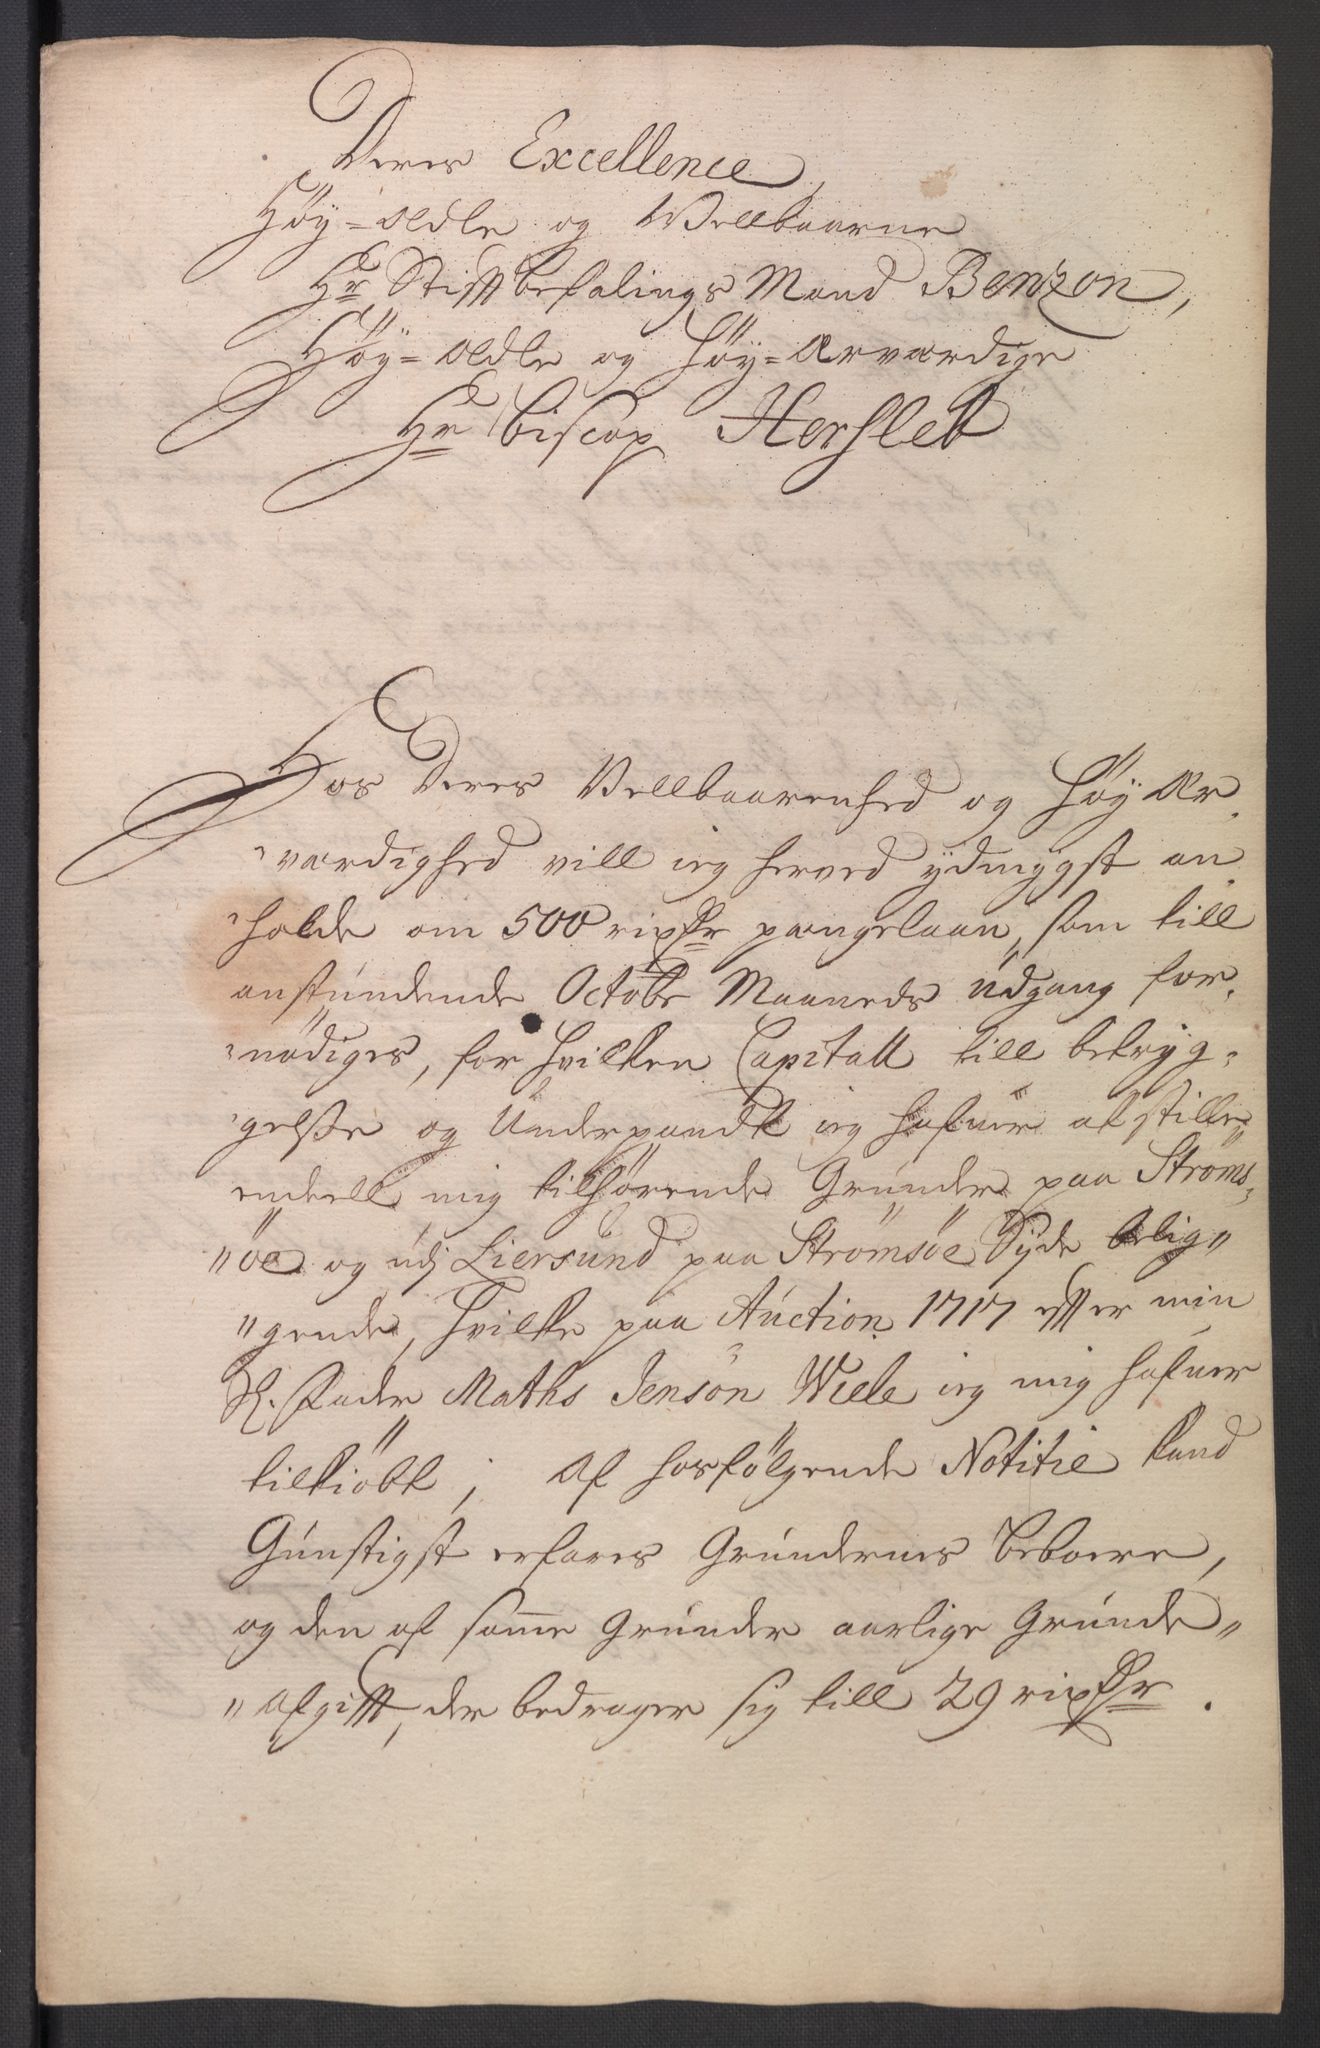 Deres Excellence,
Høÿ=ædle og Wellbaarne
Hr Stifftbefalings Mand Benzon,
Høÿ=ædle og Høÿ=ærværdige
Hr Biscop Hersleb
Hos Deres Vellbaarenhed og Høÿær„
„værdighed vill ieg herved ÿdmÿgst an„
„holde om 500 rixdlr pængelaan, som till
anstundende Octobr Maaneds Udgang for„
„nødiges, for hvilken Capitall till betrÿg„
„gelsse og Underpandt ieg hafuer at stille
endeell mig tilhørende Grunder paa Strøms„
„øe og udj Liersund paa Strømsøe Sÿde belig„
„gende, hvilke paa Auction 1717 effter min
Sl. Fader Maths Jensøn Wiele ieg mig hafuer
tilkiøbt; Af hosfølgende Notitie kand
Gunstigst erfares Grundernes Beboere,
og den af samme Grunder aarlige Grunde„
„Afgifft, der bedrager sig till 29 rixdlr.